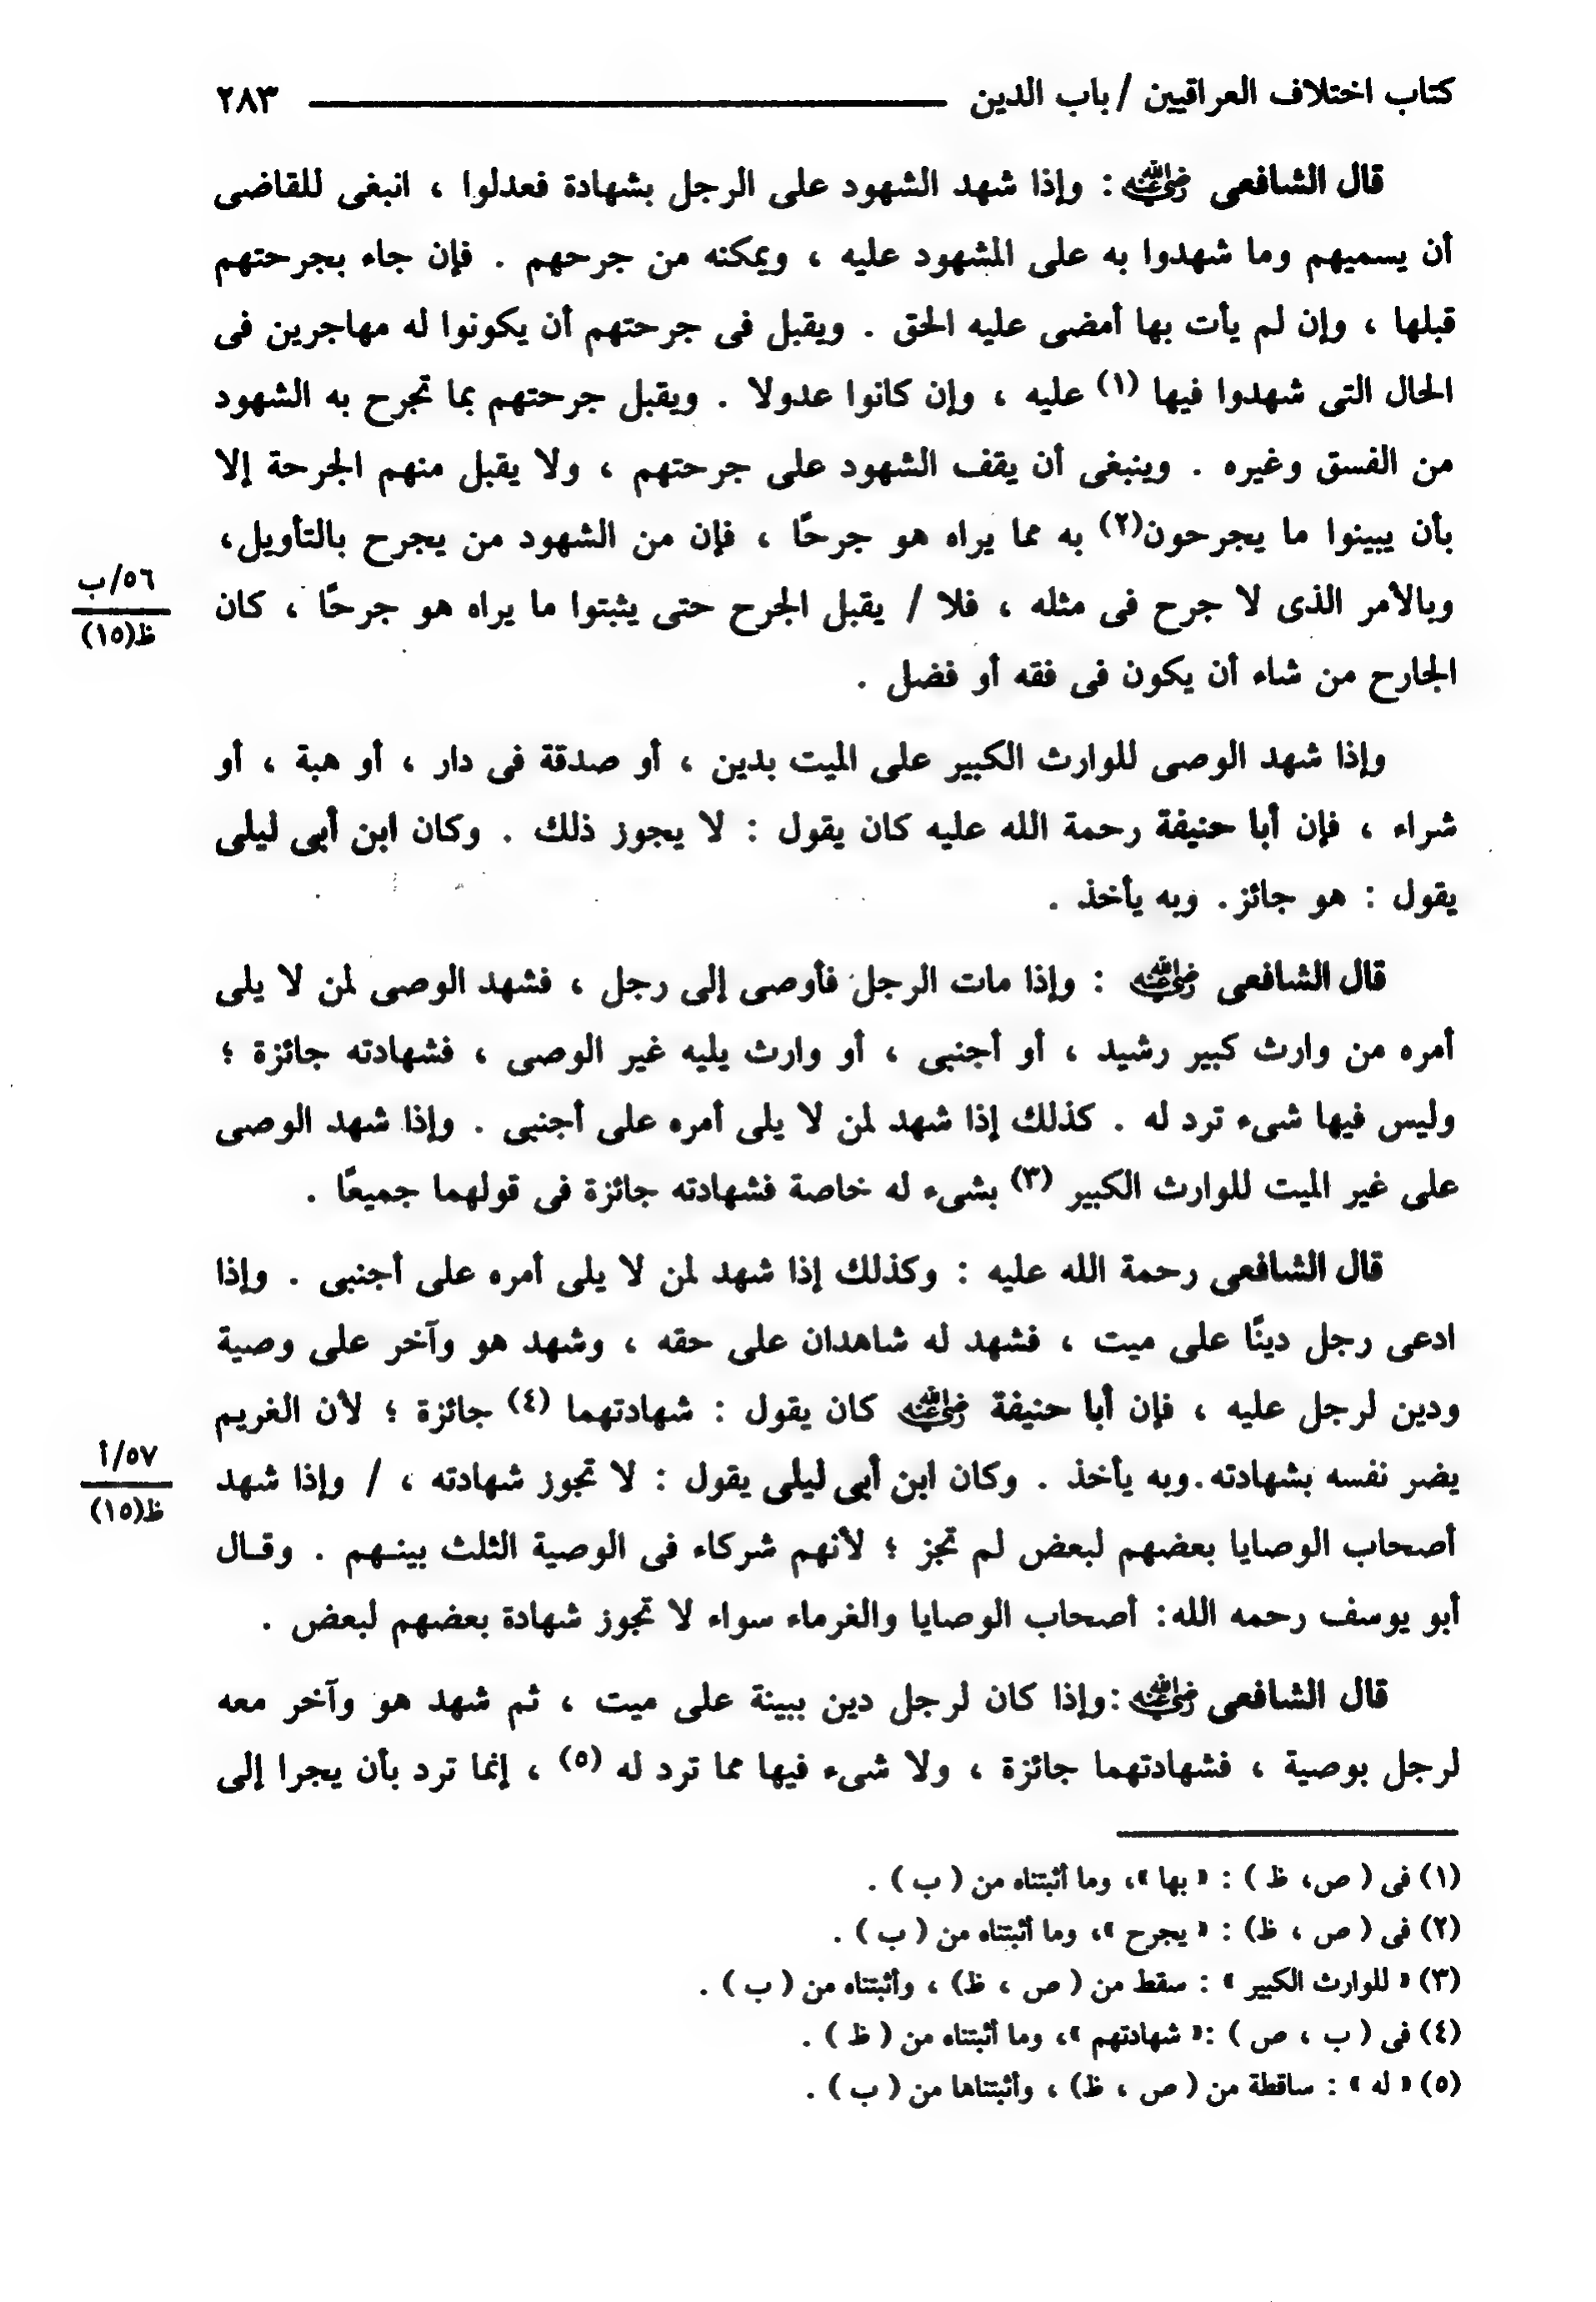 كتاب اختلاف العراقيين / باب الدين ٢٨٣
قال الشافعى رضي الله عنه : وإذا شهد الشهود على الرجل بشهادة فعدلوا ، انبغى للقاضى
أن يسميهم وما شهدوا به على المشهود عليه ، ويمكنه من جرحهم . فإن جاء بجرحتهم
قبلها ، وإن لم يأت بها أمضى عليه الحق . ويقبل فى جرحتهم أن يكونوا له مهاجرين فى
الحال التى شهدوا فيها (١) عليه ، وإن كانوا عدولا . ويقبل جرحتهم بما تجرح به الشهود
من الفسق وغيره . وينبغى أن يقف الشهود على جرحتهم ، ولا يقبل منهم الجرحة إلا
بأن يبينوا ما يجرحون(٢) به مما يراه هو جرحًا ، فإن من الشهود من يجرح بالتأويل،
وبالأمر الذى لا جرح فى مثله ، فلا / يقبل الجرح حتى يثبتوا ما يراه هو جرحًا ، كان
٥٦/ب
ظ(١٥)
الجارح من شاء أن يكون فى فقه أو فضل .
وإذا شهد الوصى للوارث الكبير على الميت بدين ، أو صدقة فى دار ، أو هبة ، أو
شراء ، فإن أبا حنيفة رحمة الله عليه كان يقول : لا يجوز ذلك . وكان ابن أبى ليلى
يقول : هو جائز. وبه يأخذ .
قال الشافعى رضي الله عنه : وإذا مات الرجل فأوصى إلى رجل ، فشهد الوصى لمن لا يلى
أمره من وارث كبير رشيد ، أو أجنبى ، أو وارث يليه غير الوصى ، فشهادته جائزة ؛
وليس فيها شىء ترد له . كذلك إذا شهد لمن لا يلى أمره على أجنبى . وإذا شهد الوصى
على غير الميت للوارث الكبير (٣) بشىء له خاصة فشهادته جائزة فى قولهما جميعًا .
قال الشافعى رحمة الله عليه : وكذلك إذا شهد لمن لا يلى أمره على أجنبى . وإذا
ادعى رجل دينًا على ميت ، فشهد له شاهدان على حقه ، وشهد هو وآخر على وصية
ودين لرجل عليه ، فإن أبا حنيفة رضي الله عنه كان يقول : شهادتهما (٤) جائزة ؛ لأن الغريم
يضر نفسه بشهادته.وبه يأخذ . وكان ابن أبى ليلى يقول : لا تجوز شهادته ، / وإذا شهد
٥٧/أ
ظ(١٥)
أصحاب الوصايا بعضهم لبعض لم تجز ؛ لأنهم شركاء فى الوصية الثلث بينـهم . وقـال
أبو يوسف رحمه الله: أصحاب الوصايا والغرماء سواء لا تجوز شهادة بعضهم لبعض .
قال الشافعى رضي الله عنه :وإذا كان لرجل دين ببينة على ميت ، ثم شهد هو وآخر معه
لرجل بوصية ، فشهادتهما جائزة ، ولا شىء فيها مما ترد له (٥) ، إنما ترد بأن يجرا إلى
(١) فى ( ص، ظ ) : « بها »، وما أثبتناه من ( ب ) .
(٢) فى ( ص ، ظ) : « يجرح »، وما أثبتناه من ( ب ) .
(٣) « للوارث الكبير » : سقط من ( ص ، ظ) ، وأثبتناه من ( ب ) .
(٤) فى ( ب ، ص ) :« شهادتهم »، وما أثبتناه من ( ظ ) .
(٥) « له » : ساقطة من ( ص ، ظ) ، وأثبتناها من ( ب ) .